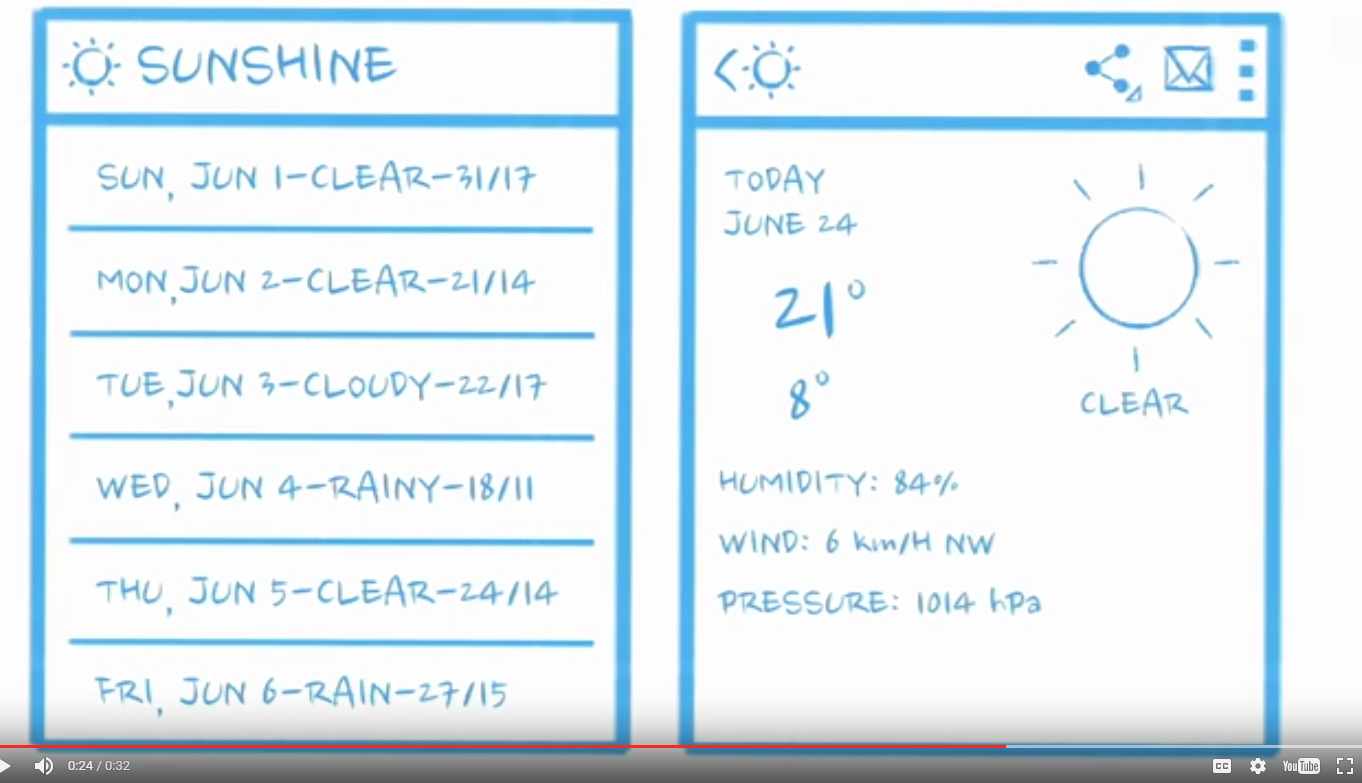 SUNSHINE
SUN, JUN 1-CLEAR-31/17
MON, JUN 2-CLEAR-21/14
TUE, JUN 3-CLOUDY-22/17
WED, JUN 4-RAINY-18/11
THU, JUN 5-CLEAR-24/14
FRI, JUN 6-RAIN-27/15
TODAY
JUNE 24
21°
8°
CLEAR
HUMIDITY: 84%
WIND: 6 km/H NW
PRESSURE: 1014 hPa
0:24 / 0:32
CC
YouTube